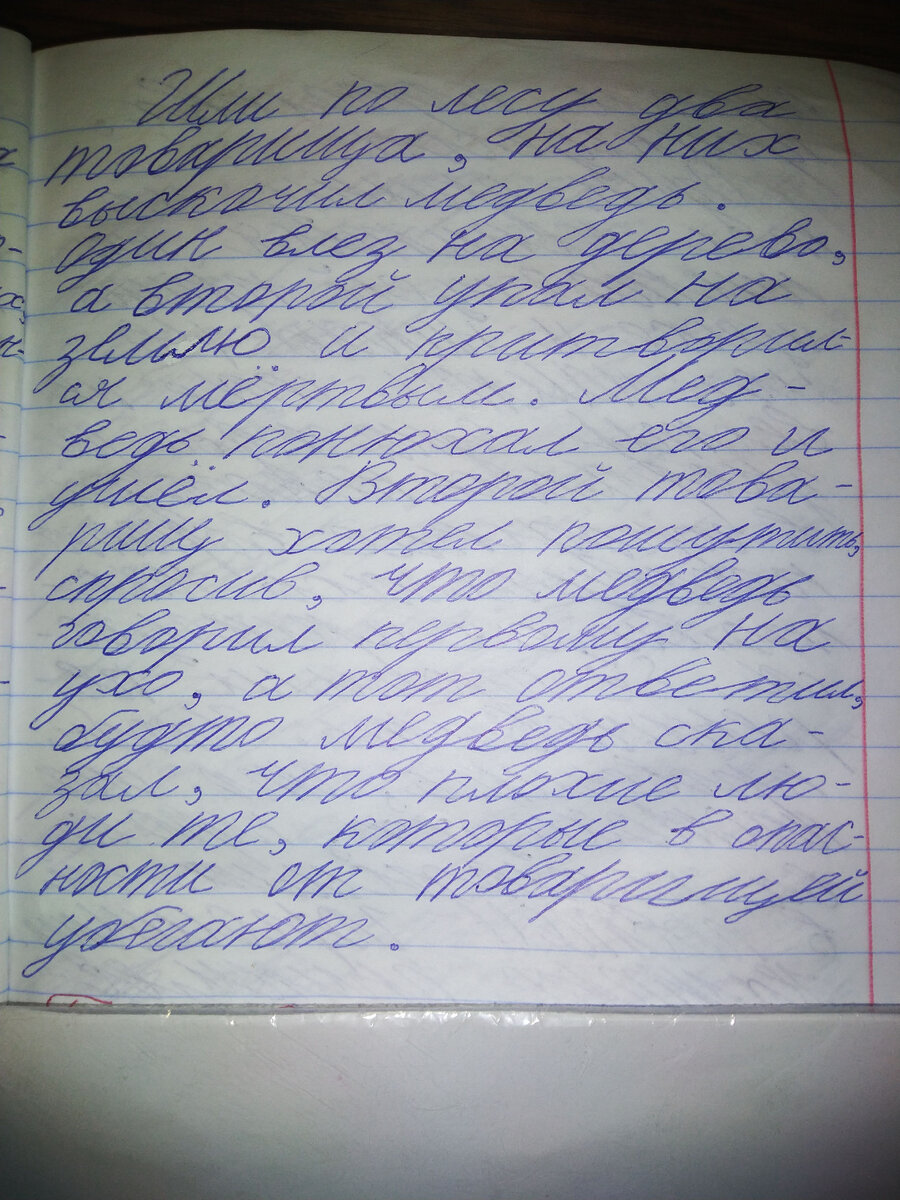 Шли по лесу два
товарища, на них
выскочил медведь.
Один влез на дерево,
а второй упал на
землю и притворил-
ся мёртвым. Мед-
ведь понюхал его и
ушёл. Второй това-
рищ хотел пошутить,
спросив, что медведь
говорил первому на
ухо, а тот ответил,
будто медведь ска-
зал, что плохие лю-
ди те, которые в опас-
ности от товарищей
убегают.